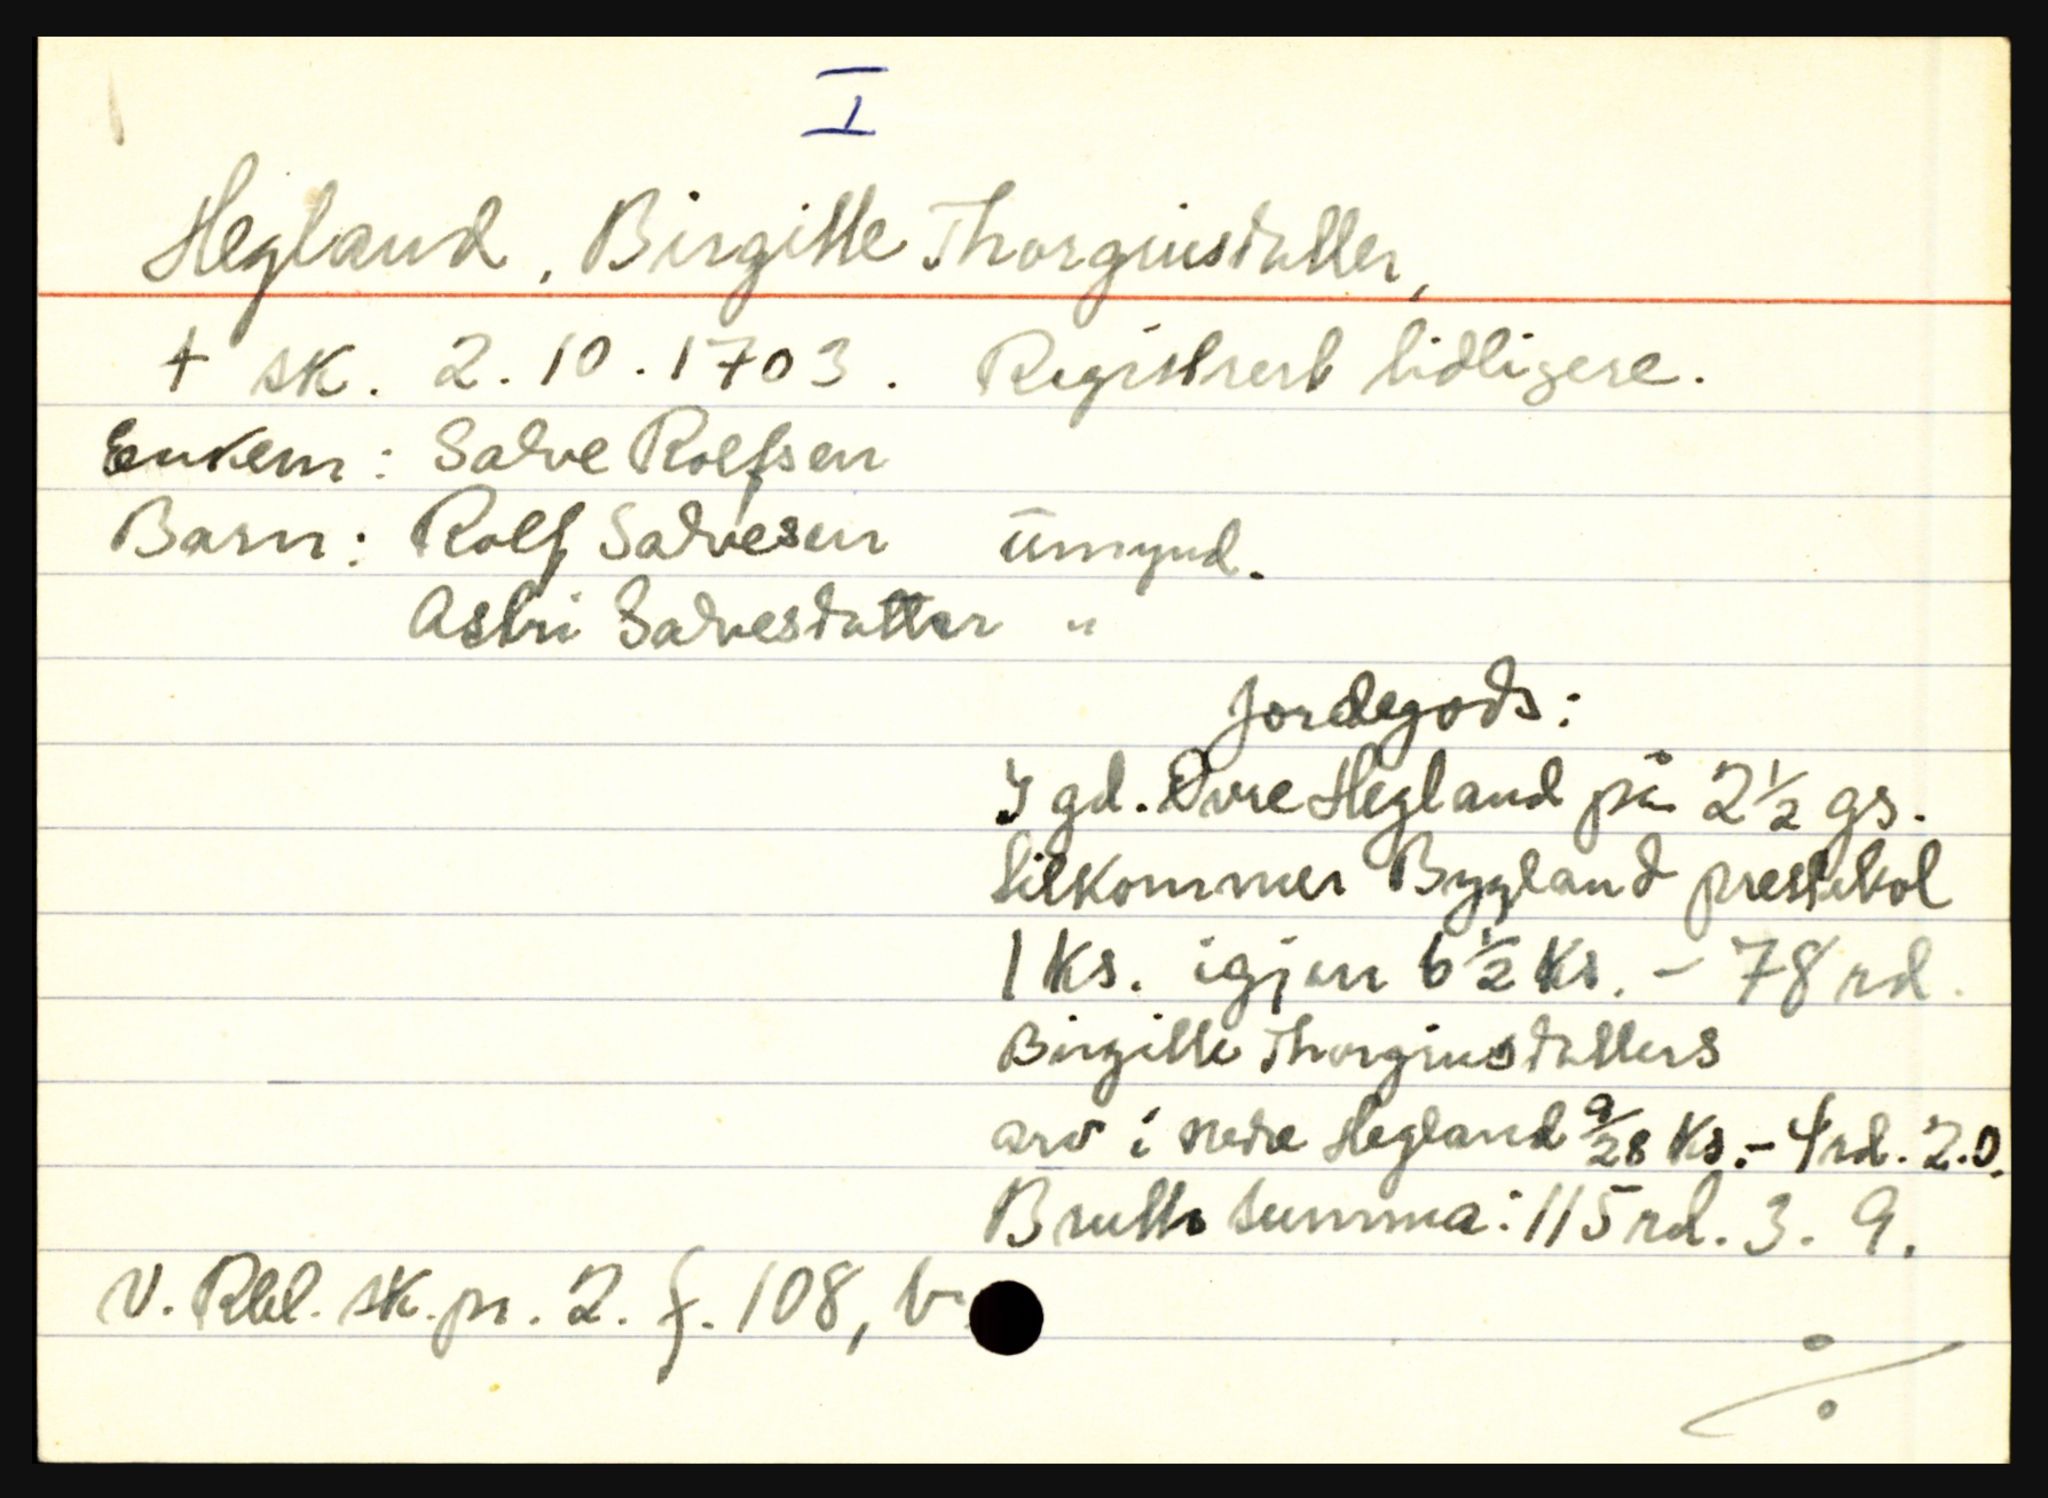 I
Hegland, Birgitte Thorgiusdatter,
+ sk. 2.10.1703. Registrert tidligere.
Enkem: Salve Rolfsen
Barn: Rolf Salvesen umynd.
Astri Salvesdatter "
Jordegods:
I gd. Øvre Hegland på 2 1/2 gs.
tilkommer Bygland prestebol
1 ks. igjen 6 1/2 ks. - 78 rd.
Birgitte Thorgiusdatters
arv i nedre Hegland 9/28 ks. - 4 rd. 2.0.
Brutto summa: 115 rd. 3. 9.
V. Rbl. sk. pr. 2. f. 108, b.
./.